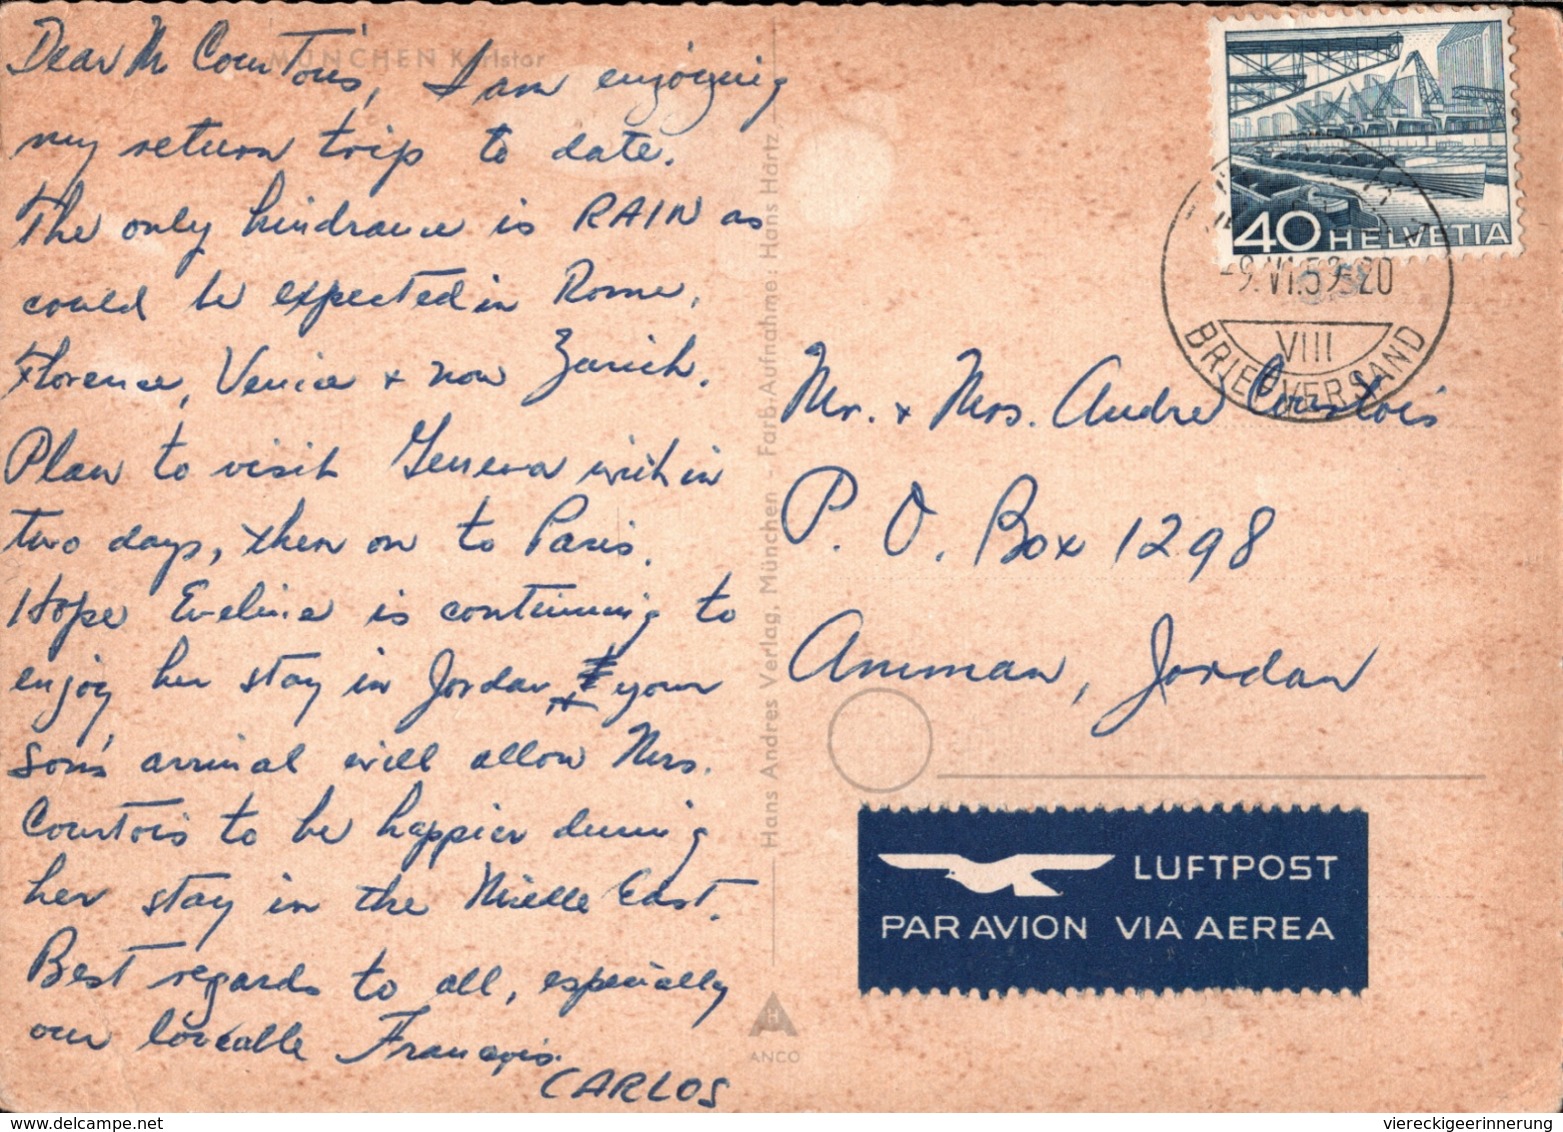 MÜNCHEN Karlstor
Dear Mr Courtois, I am enjoying
my return trip to date.
The only hindrance is RAIN as
could be expected in Rome,
Florence, Venice + now Zurich.
Plan to visit Geneva within
two days, then on to Paris.
Hope Eveline is continuing to
enjoy her stay in Jordan + your
son's arrival will allow Mrs.
Courtois to be happier during
her stay in the Middle East.
Best regards to all, especially
our loveable François.
CARLOS
Hans Andres Verlag, München - Farb-Aufnahme: Hans Härtz
H
ANCO
40 HELVETIA
-9.VI.59-20
VIII
BRIEFVERSAND
Mr. + Mrs. Andre Courtois
P. O. Box 1298
Amman, Jordan
LUFTPOST
PAR AVION VIA AEREA
www.delcampe.net
viereckigeerinnerung